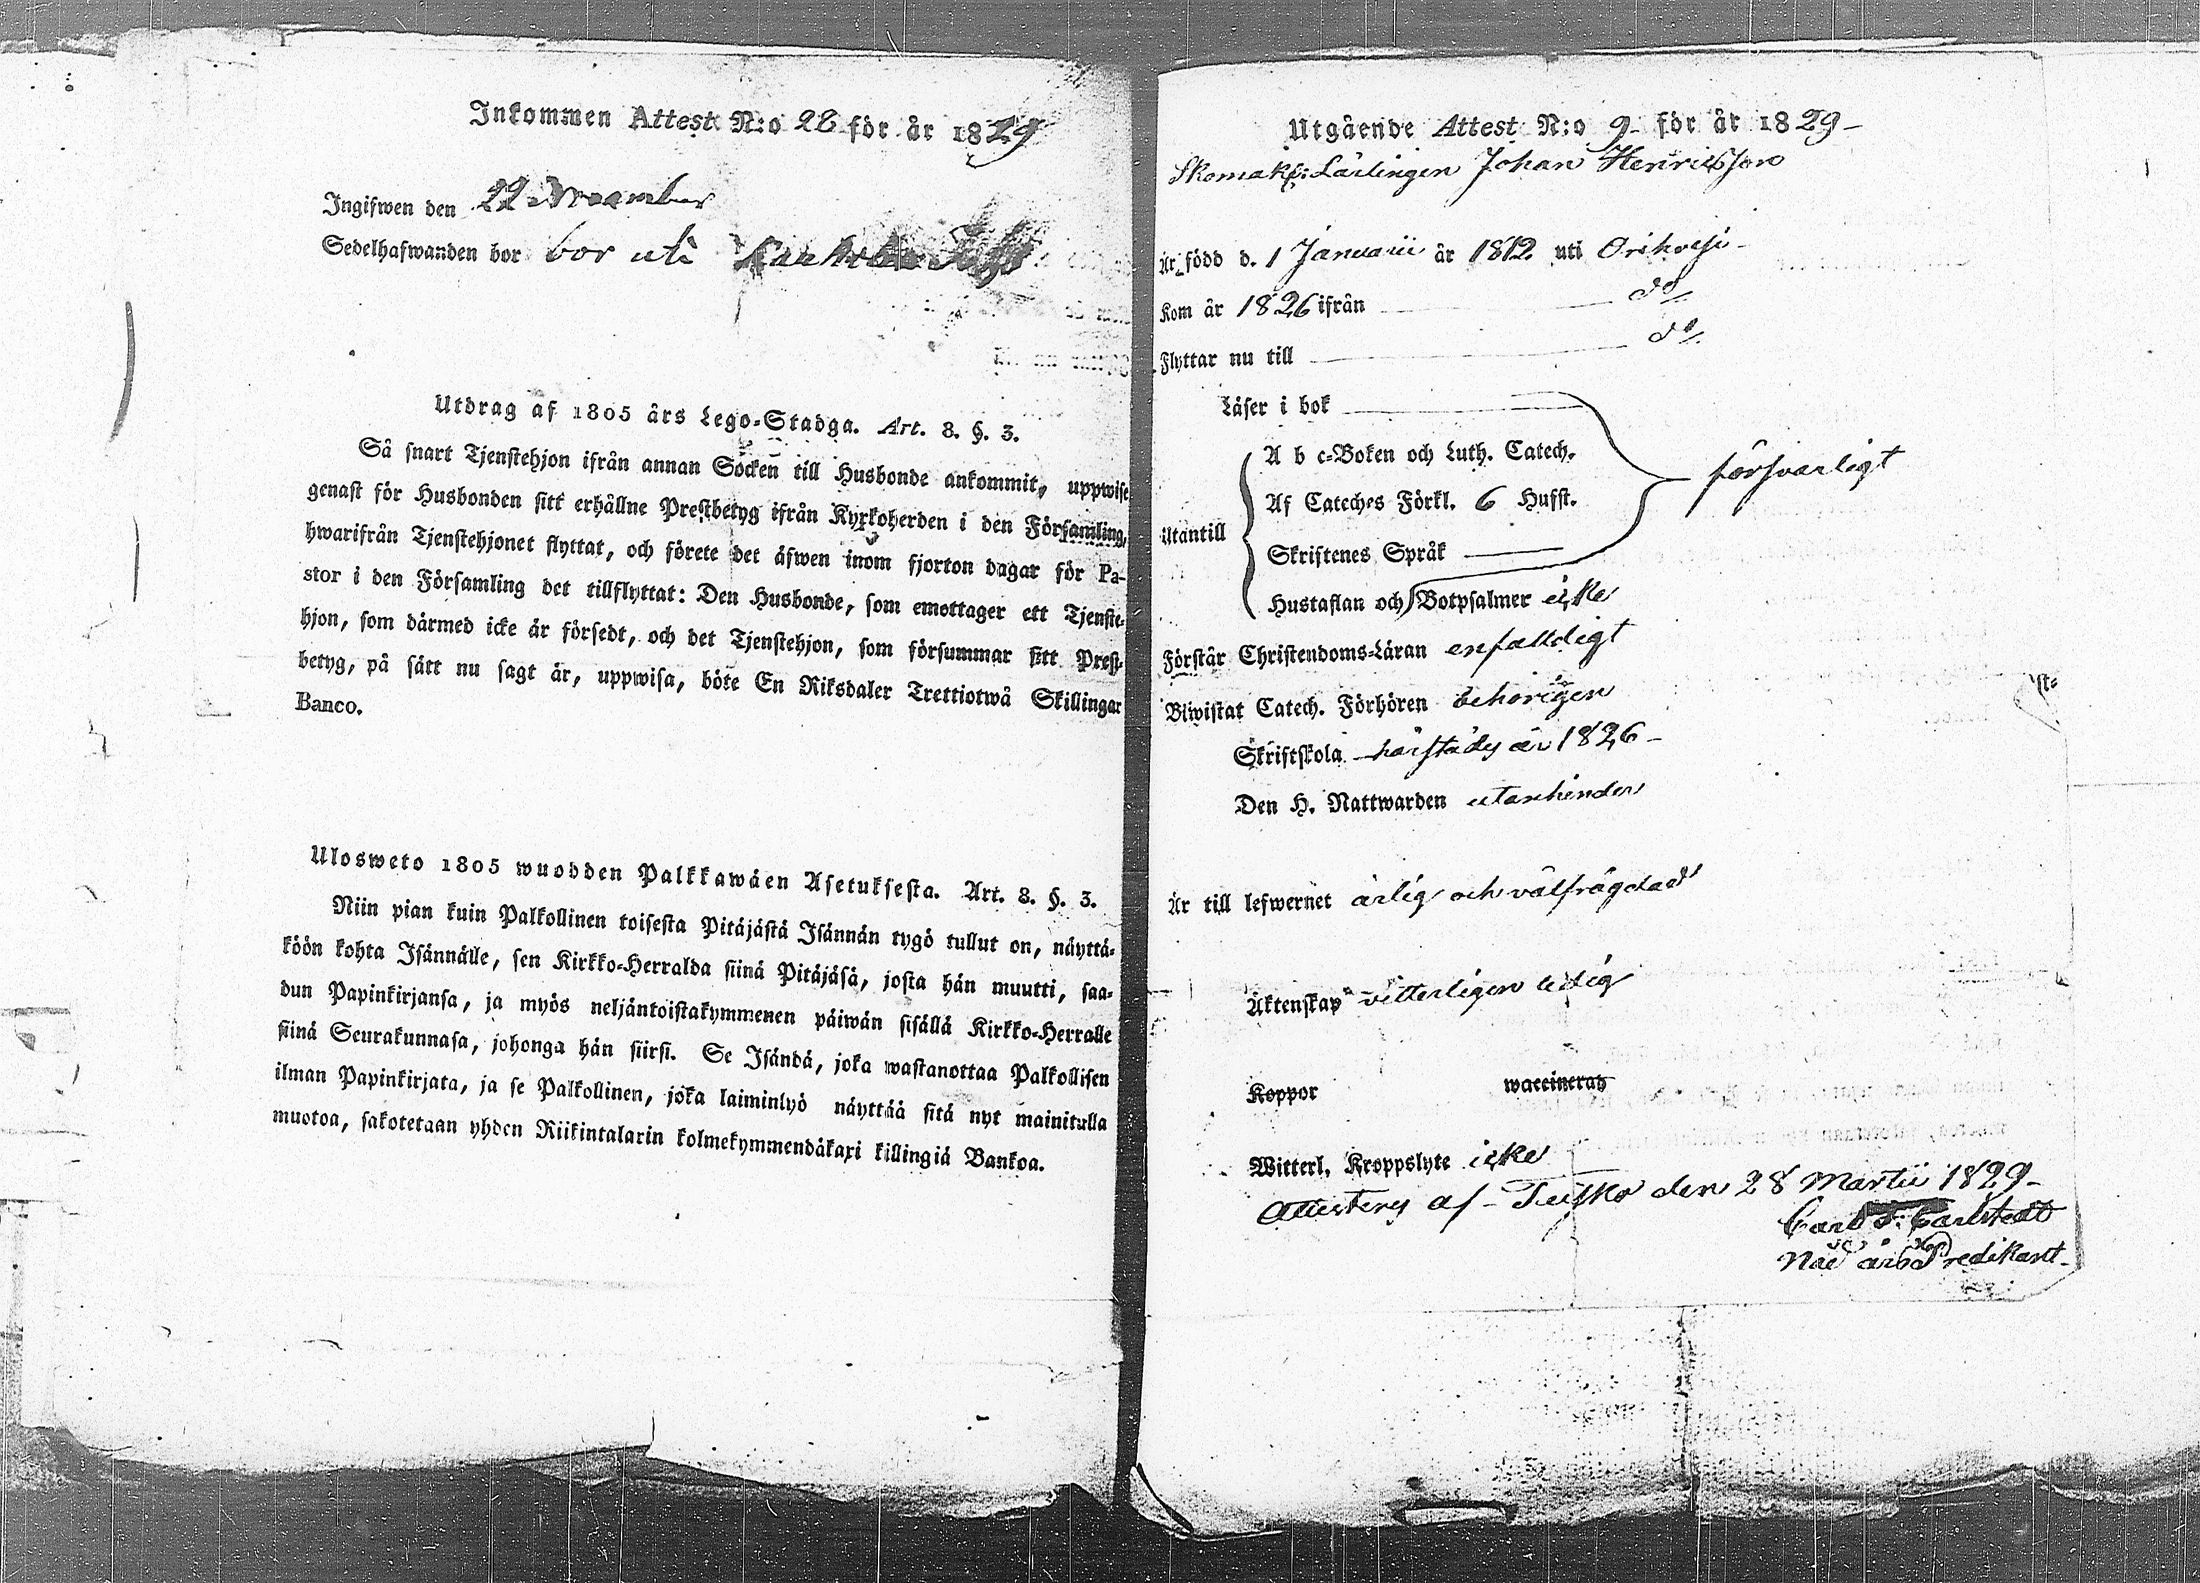 Inkommen Attest N:o 28 för år 1829
Ingifwen den 22 November
Sedelhafwanden bor bor uti
Utdrag af 1805 års Lego-Stadga. Art. 8. §. 3.
Så snart Tjenstehjon ifrån annan Socken till Husbonde ankommit, uppwise
genast för Husbonden sitt erhållne Prestbetyg ifrån Kyrkoherden i den Församling,
hwarifrån Tjenstehjonet flyttat, och förete det äfwen inom fjorton dagar för Pa-
stor i den Församling det tillflyttat: Den Husbonde, som emottager ett Tjenste-
hjon, som därmed icke är försedt, och det Tjenstehjon, som försummar sitt Prest-
betyg, på sätt nu sagt är, uppwisa, böte En Riksdaler Trettiotwå Skillingar
Banco.
Ulosweto 1805 wuodden Palkkawäen Asetuksesta. Art. 8. §. 3.
Niin pian kuin Palkollinen toisesta Pitäjästä Isännän tygö tullut on, näyttä-
köön kohta Isännälle, sen Kirkko-Herralda siinä Pitäjäsä, josta hän muutti, saa-
dun Papinkirjansa, ja myös neljäntoistakymmenen päiwän sisällä Kirkko-Herralle
siinä Seurakunnasa, johonga hän siirsi. Se Isändä, joka wastanottaa Palkollisen
ilman Papinkirjata, ja se Palkollinen, joka laiminlyö näyttää sitä nyt mainitulla
muotoa, sakotetaan yhden Riikintalarin kolmekymmendäkaxi killingiä Bankoa.
Utgående Attest N:o 9 för år 1829
Skomak: Lärlingen Johan Henricsson
Är född d. 1 Januarii år 1812 uti Orihvesi
Kom år 1826 ifrån do
Flyttar nu till do
Läser i bok
A b c-Boken och Luth. Catech.
Af Cateches Förkl. 6 Hufst.
försvarligt
Utantill
Skriftenes Språk
Hustaflan och Botpsalmer icke
Förstår Christendoms-Läran enfalldigt
Biwistat Catech. Förhören behörigen
Skriftskola härstädes år 1826
Den H. Nattwarden utan hinder
Är till lefwernet ärlig och välfrägdad
Äktenskap vitterligen ledig
Koppor waccinerad
Witterl. Kroppslyte icke
Attesteras af Teisko den 28 Martii 1829
Carl F. Carlstedt
Nåd års Predikant